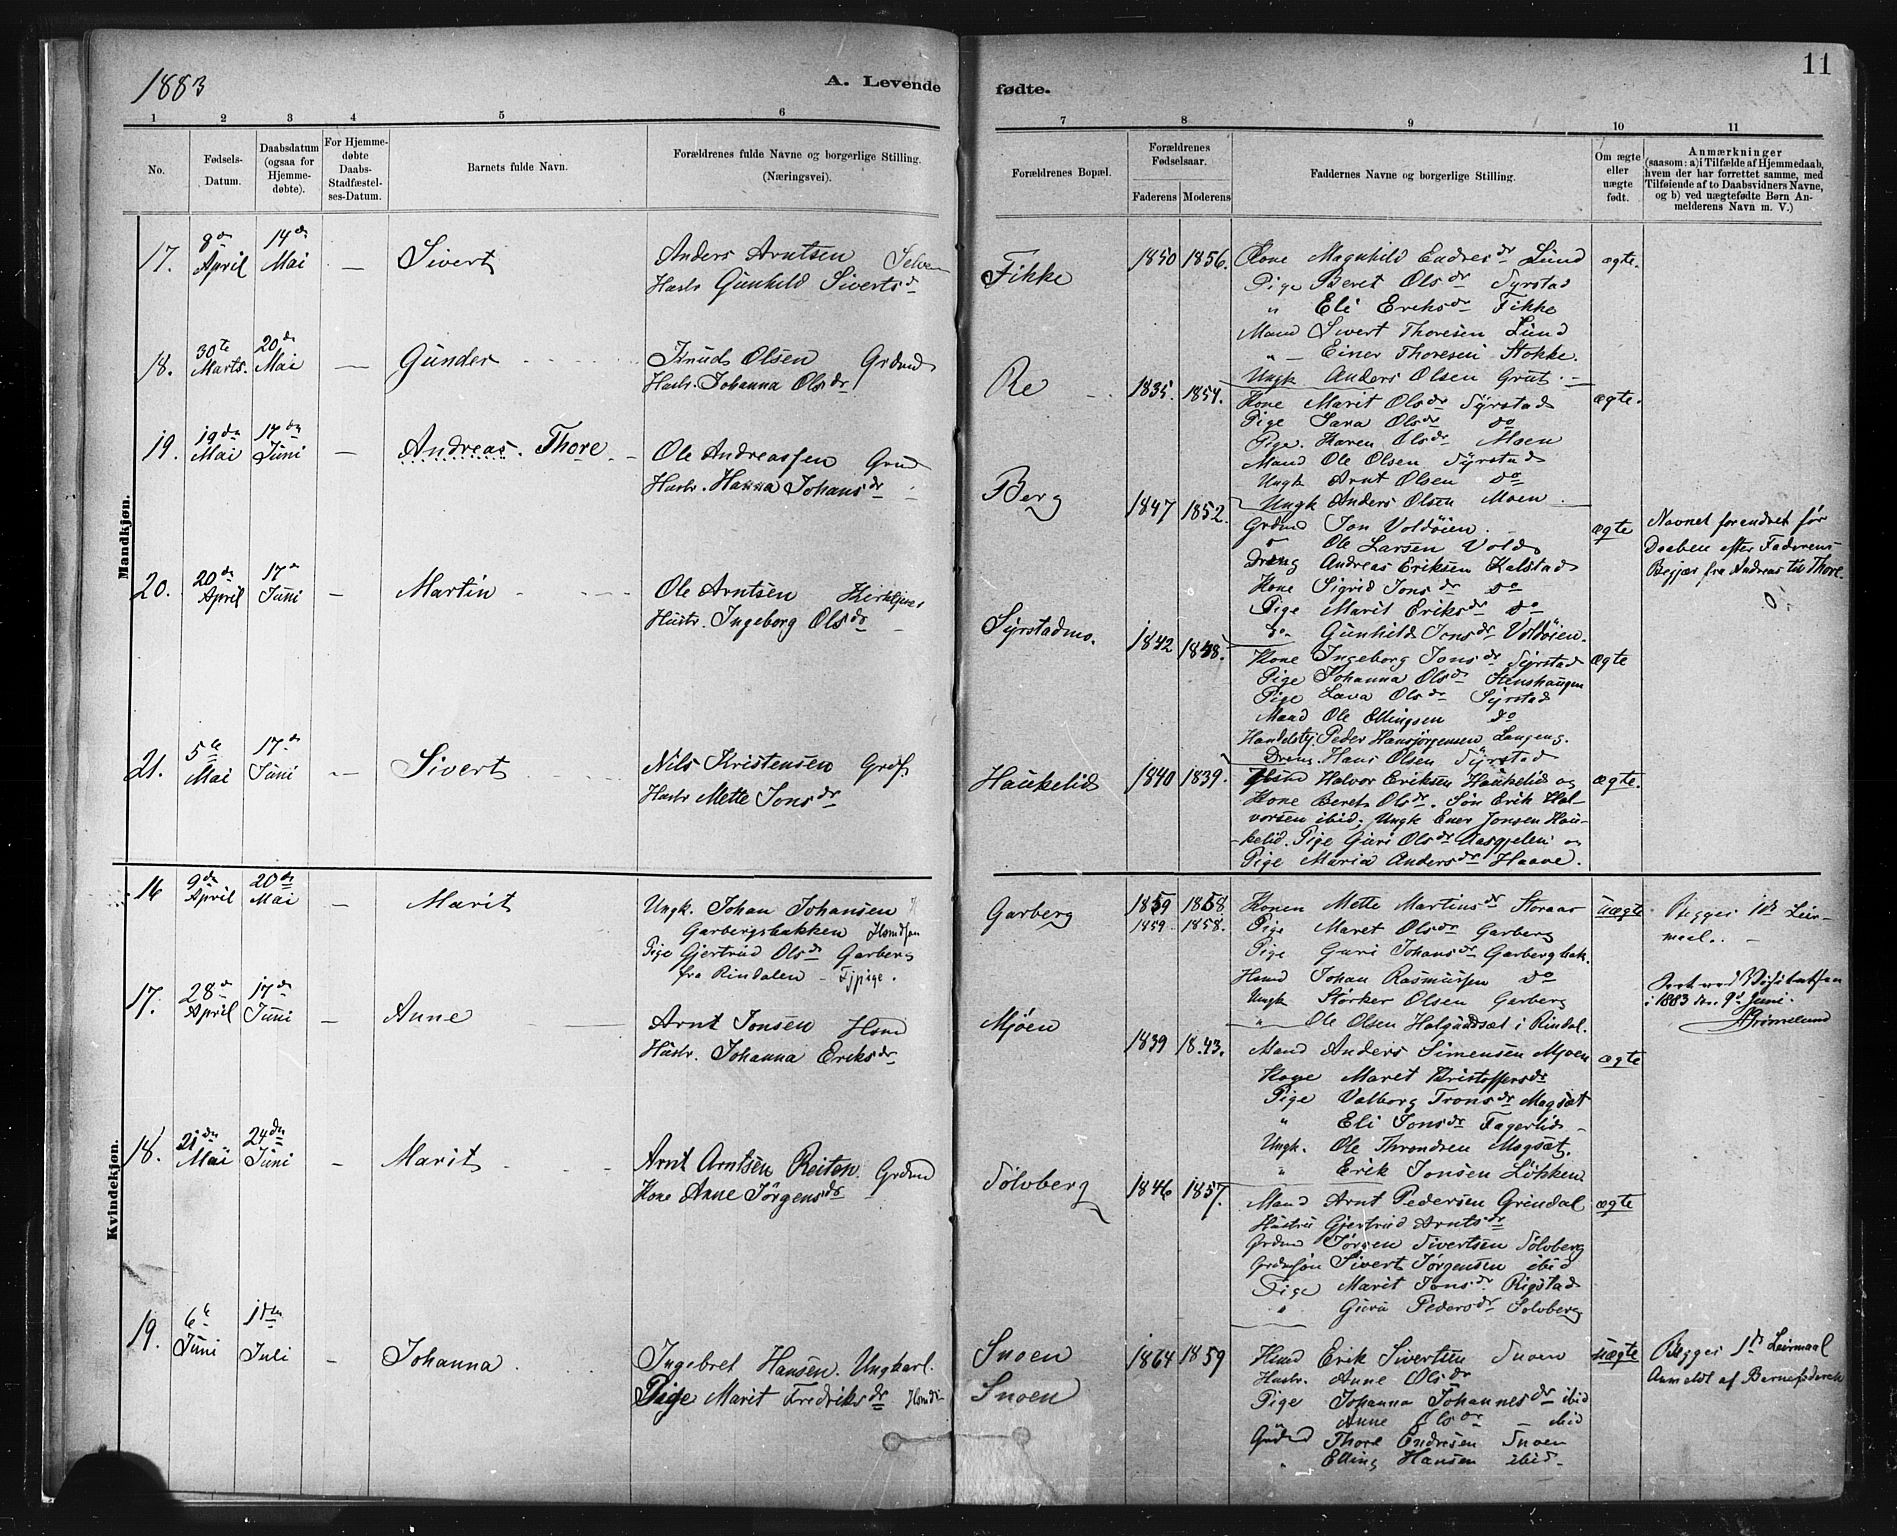 1883
A. Levende
fødte.
11
1 2 3 4 5 6 7 8 9 10 11
No.
Fødsels-Datum.
Daabsdatum (ogsaa for Hjemmedøbte).
For Hjemmedøbte Daabs-Stadfæstelses-Datum.
Barnets fulde Navn.
Forældrenes fulde Navne og borgerlige Stilling. (Næringsvei).
Forældrenes Bopæl.
Forældrenes Fødselsaar.
Faderens Moderens
Faddernes Navne og borgerlige Stilling.
Om ægte eller uægte født.
Anmærkninger
(saasom: a) i Tilfælde af Hjemmedaab, hvem der har forrettet samme, med Tilføiende af to Daabsvidners Navne, og b) ved uægtefødte Børn Anmelderens Navn m. V.)
Mandkjøn.
17. 8de April 14de Mai — Sivert
Anders Arntsen Selvei
Hustr Gunhild Sivertsdr
Fikke 1850 1856. ægte.
Kone Magnhild Endresdr Lund
Pige Beret Olsdr Syrstad
" Eli Eriksdr Fikke
Mand Sivert Thoresen Lund
" — Einer Thoresen Stokke.
Ungk Anders Olsen Grut.
18. 30te Marts. 20de Mai — Gunder
Knud Olsen Grdmd
Hustr. Johanna Olsdr
Re 1835. 1854. ægte.
Kone Marit Olsdr Syrstad
Pige Sara Olsdr do
Pige. Karen Olsdr Moen
Mand Ole Olsen Syrstad
Ungk Arnt Olsen do
Ungk Anders Olsen Moen
19. 19de Mai 17de Juni — Andreas. Thore
Ole Andreassen Grmd
Hustr. Hanna Johansdr
Berg 1847 1852. ægte
Grdmd Jon Voldøien.
do Ole Larsen Vold
Dreng Andreas Eriksen Kalstad
Kone Sigrid Jonsdr do
Pige Marit Eriksdr do
do Gunhild Jonsdr Voldøien.
Navnet forandret før
Daaben efter Faderens
Begjær fra Andreas til Thore.
20. 20de April 17de Juni — Martin
Ole Arntsen
Hustr. Ingeborg Olsdr
Syrstadmo. 1842 1848. ægte
Kone Ingeborg Jonsdr Syrstad
Pige Johanna Olsdr Stenshaugen
Pige Lava Olsdr Syrstad
Mand Ole Ellingsen do
Handelsbj. Peder Hansjørgensen Langeng.
Dreng. Hans Olsen Syrstad
21. 5te Mai 17de Juni — Sivert
Nils Kristensen Grdf
Hustr Mette Jonsdr
Haukelid 1840 1839. ægte.
Halvor Eriksen Haukelid og
Kone Beret Olsdr. Søn Erik Hal-
vorsen ibid; Ungk Ener Jonsen Hau-
kelid. Pige Guri Olsdr Aasgjelen og
Pige Maria Andersdr Haave.
Kvindekjøn.
16 9de April 20de Mai — Marit
Ungk. Johan Johansen
Garbergsbakken Hsmdsøn
Pige Gjertrud Olsdr Garberg
fra Rindalen — Tjpige.
Garberg 1859 1858
1859 1858. uægte
Konen Mette Martinsdr Storaas
Pige Maret Olsdr Garberg
Pige Guri Johansdr Garbergbak.
Hsmd Johan Rasmussen do
Ungk Størker Olsen Garberg
" Ole Olsen Halgundsæt i Rindal.
Begges 1de Leier-
maal.. —
Foret ved Visitatsen
i 1883 den 9d Juni.
Grimelund
17. 28de April 17de Juni — Anne
Arnt Jonsen Hsmd
Hustr. Johanna Eriksdr
Mjøen 1839 1843. ægte
Mand Anders Simensen Mjøen
Kone Maret Kristoffersdr
Pige Valborg Tronsdr Mogsæt
" Eli Jonsdr Fagerlid
Ungk. Ole Throndsen Mogsæt.
" Erik Jonsen Løkken
18. 21de Mai 24de Juni — Marit
Arnt Arntsen Reiten Grdmd
Kone Anne Jørgensdr
Sølvberg 1846 1857. ægte
Mand Arnt Pedersen Grindal
Hustru Gjertrud Arntsdr
Grdmd Jørgen Sivertsen Sølvberg
Grdmsøn Sivert Jørgensen ibid
Pige Marit Jonsdr Rigstad
" Guru Pedersdr Solvberg
19. 6te Juni 1ste Juli — Johanna.
Ingebret Hansen. Ungkarl.
Pige Marit Fredriksdr Hsmd
Snoen
Snoen
1864 1859 uægte
Hsmd Erik Sivertsen Snoen
Hustr. Anne Olsdr
Pige Johanna Johannesdr ibid
" Anne Olsdr — ibid
Grdmd Thore Endresen Snoen
" Elling Hansen ibid.
Begges 1ste Leiermaal
Anmeldt af Barnefaderen